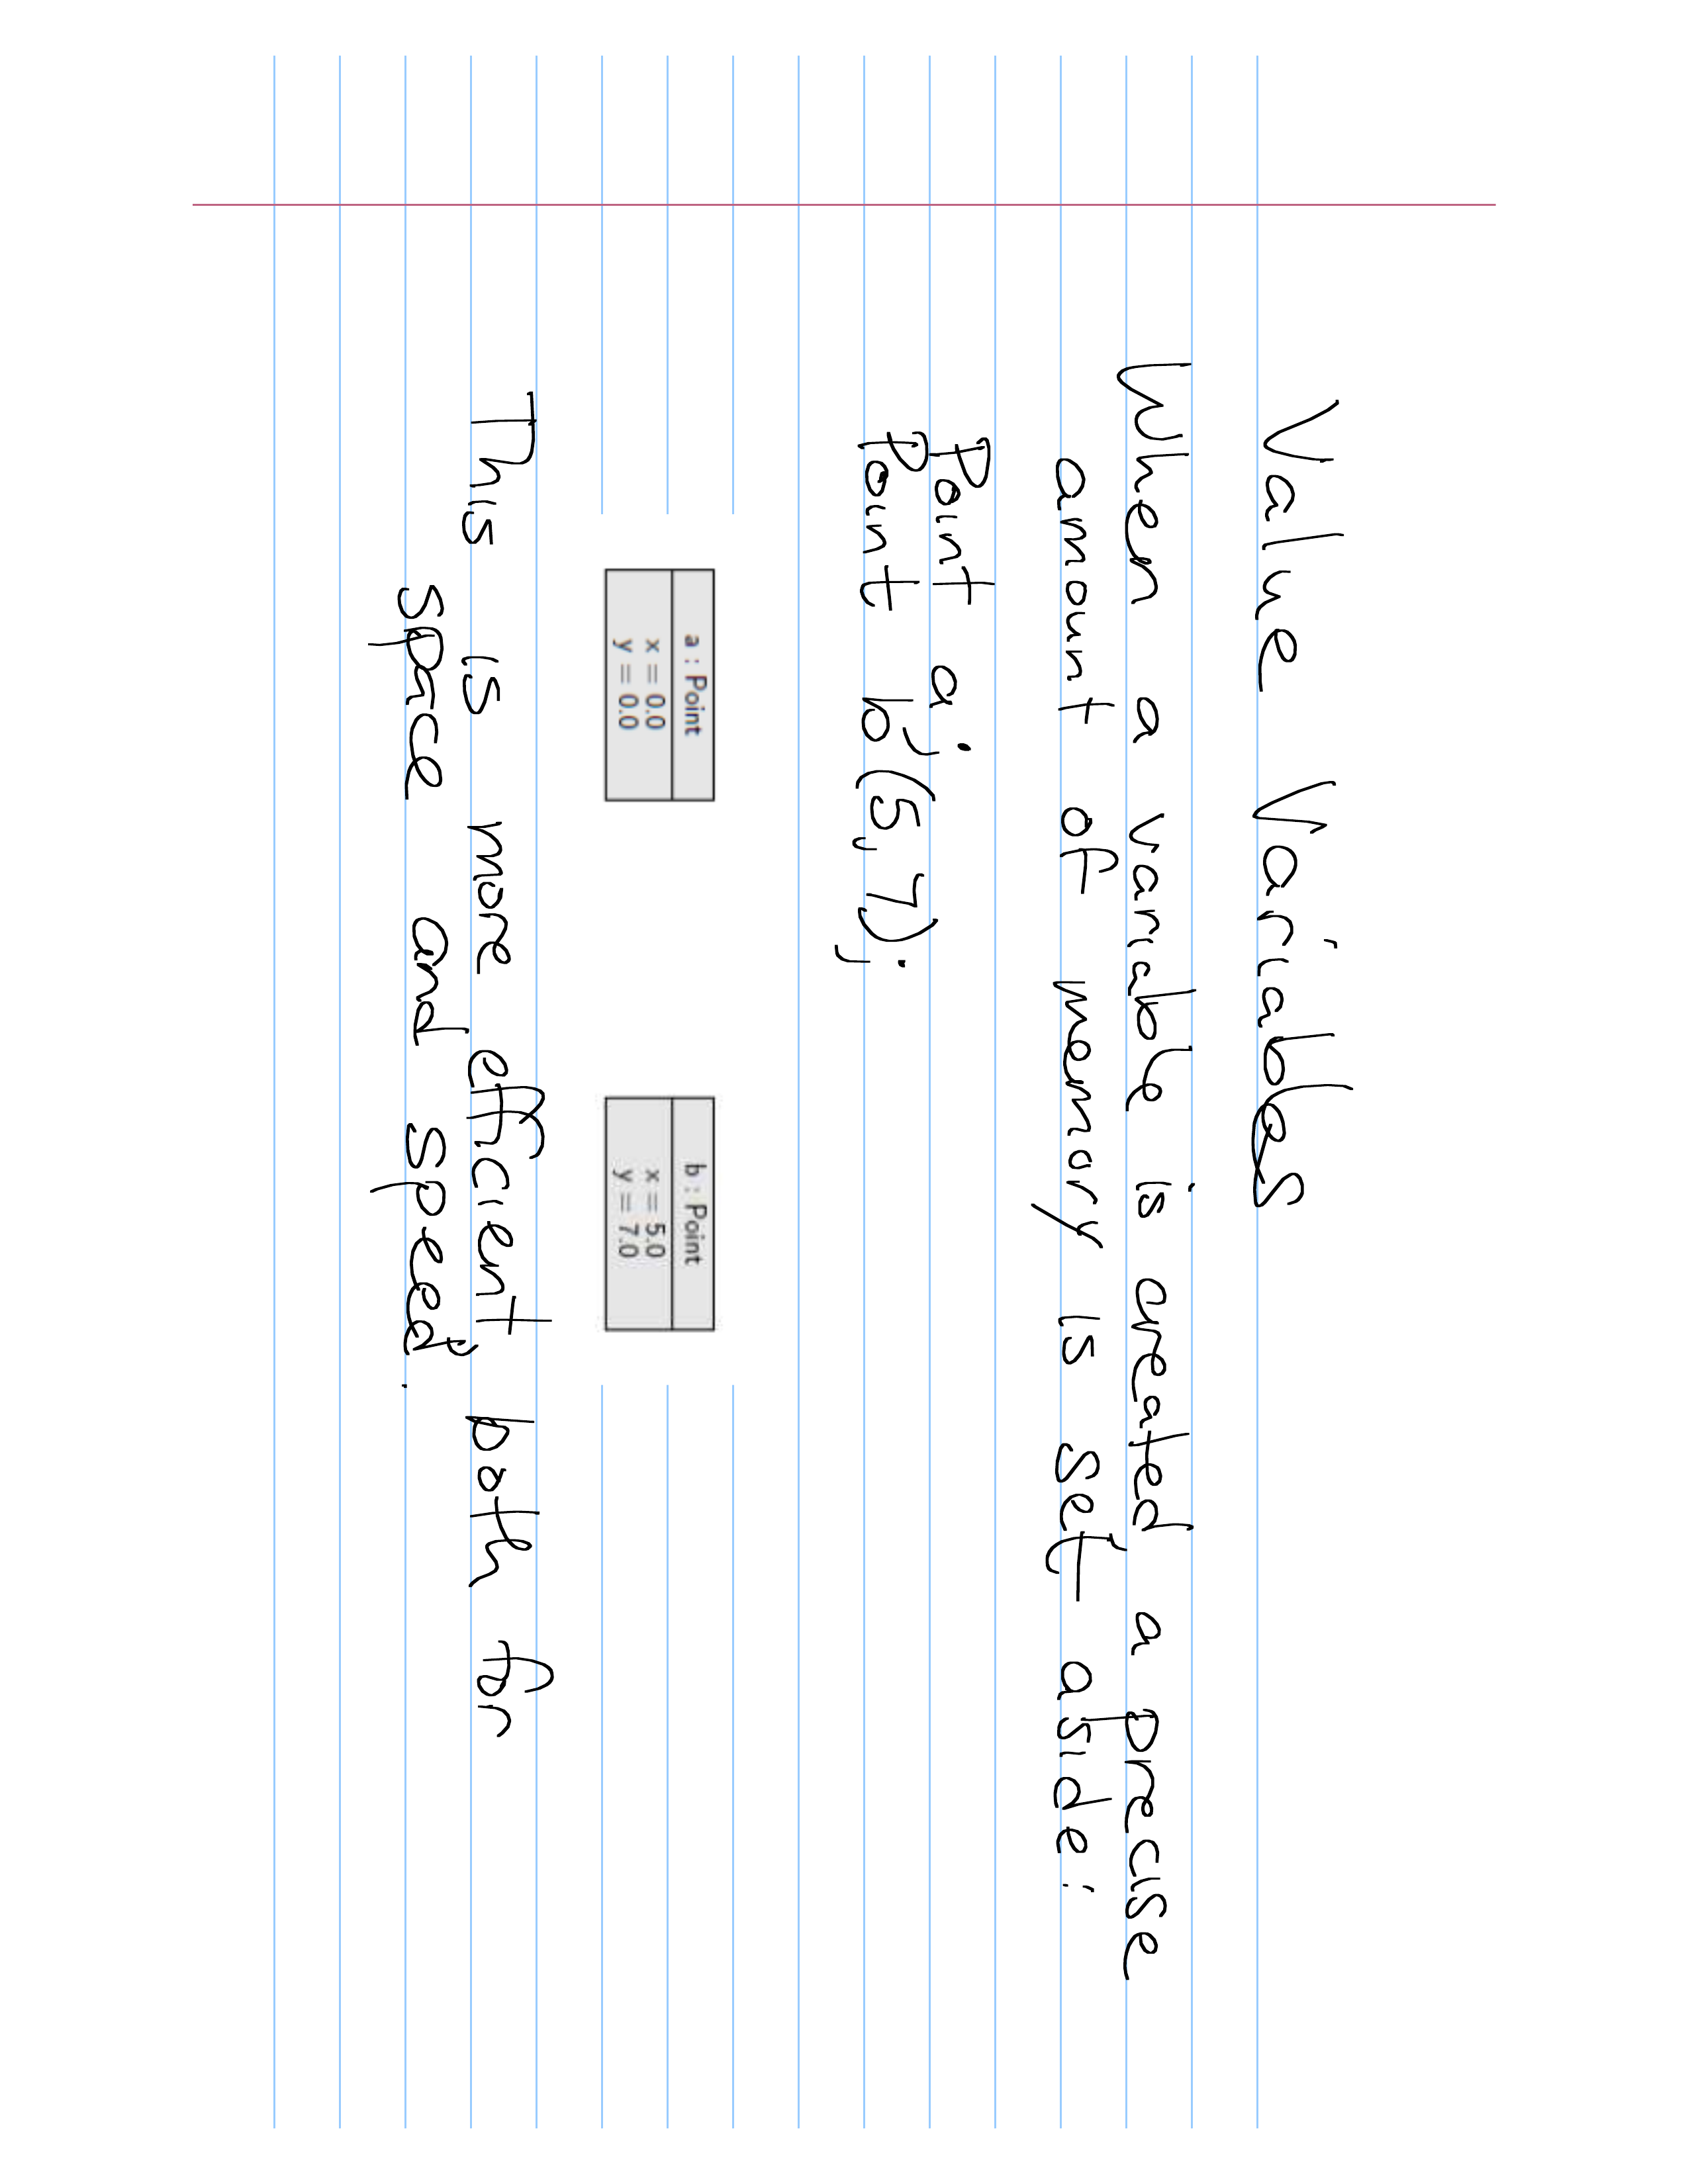 Value Variables
When a variable is created a precise
amount of memory is set aside:
Point a;
Point b(5,7);
a : Point
x = 0.0
y = 0.0
b : Point
x = 5.0
y = 7.0
This is more efficient, both for
space and speed.